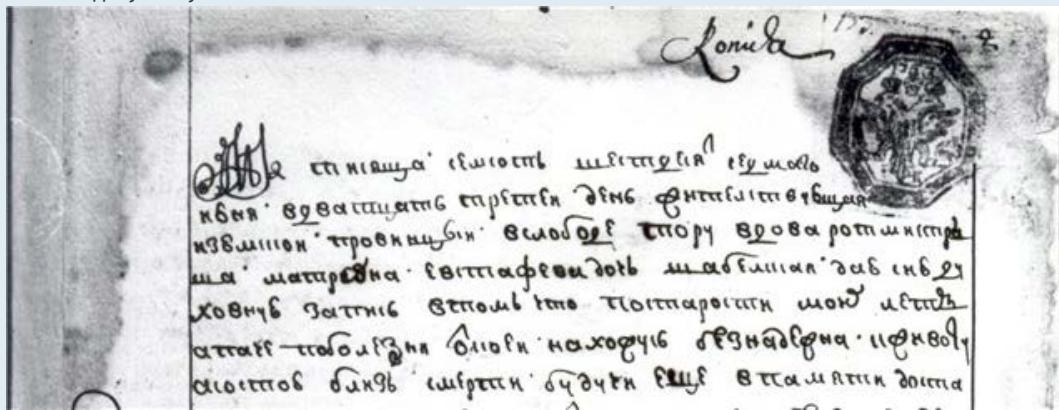 Копия
тисяща семсотъ шестдеся седмаго
июня вдватцать третеи день жителствующая
изюмскои провинцыи вслободе вдова ротмистр
ша матрена евстафева дочь шабелская дав сию ду
ховную запись втомъ что постарости моих летъ
атакже поболезни своеи находусь безнадежна
близь смерти будучи еще впамяти доста